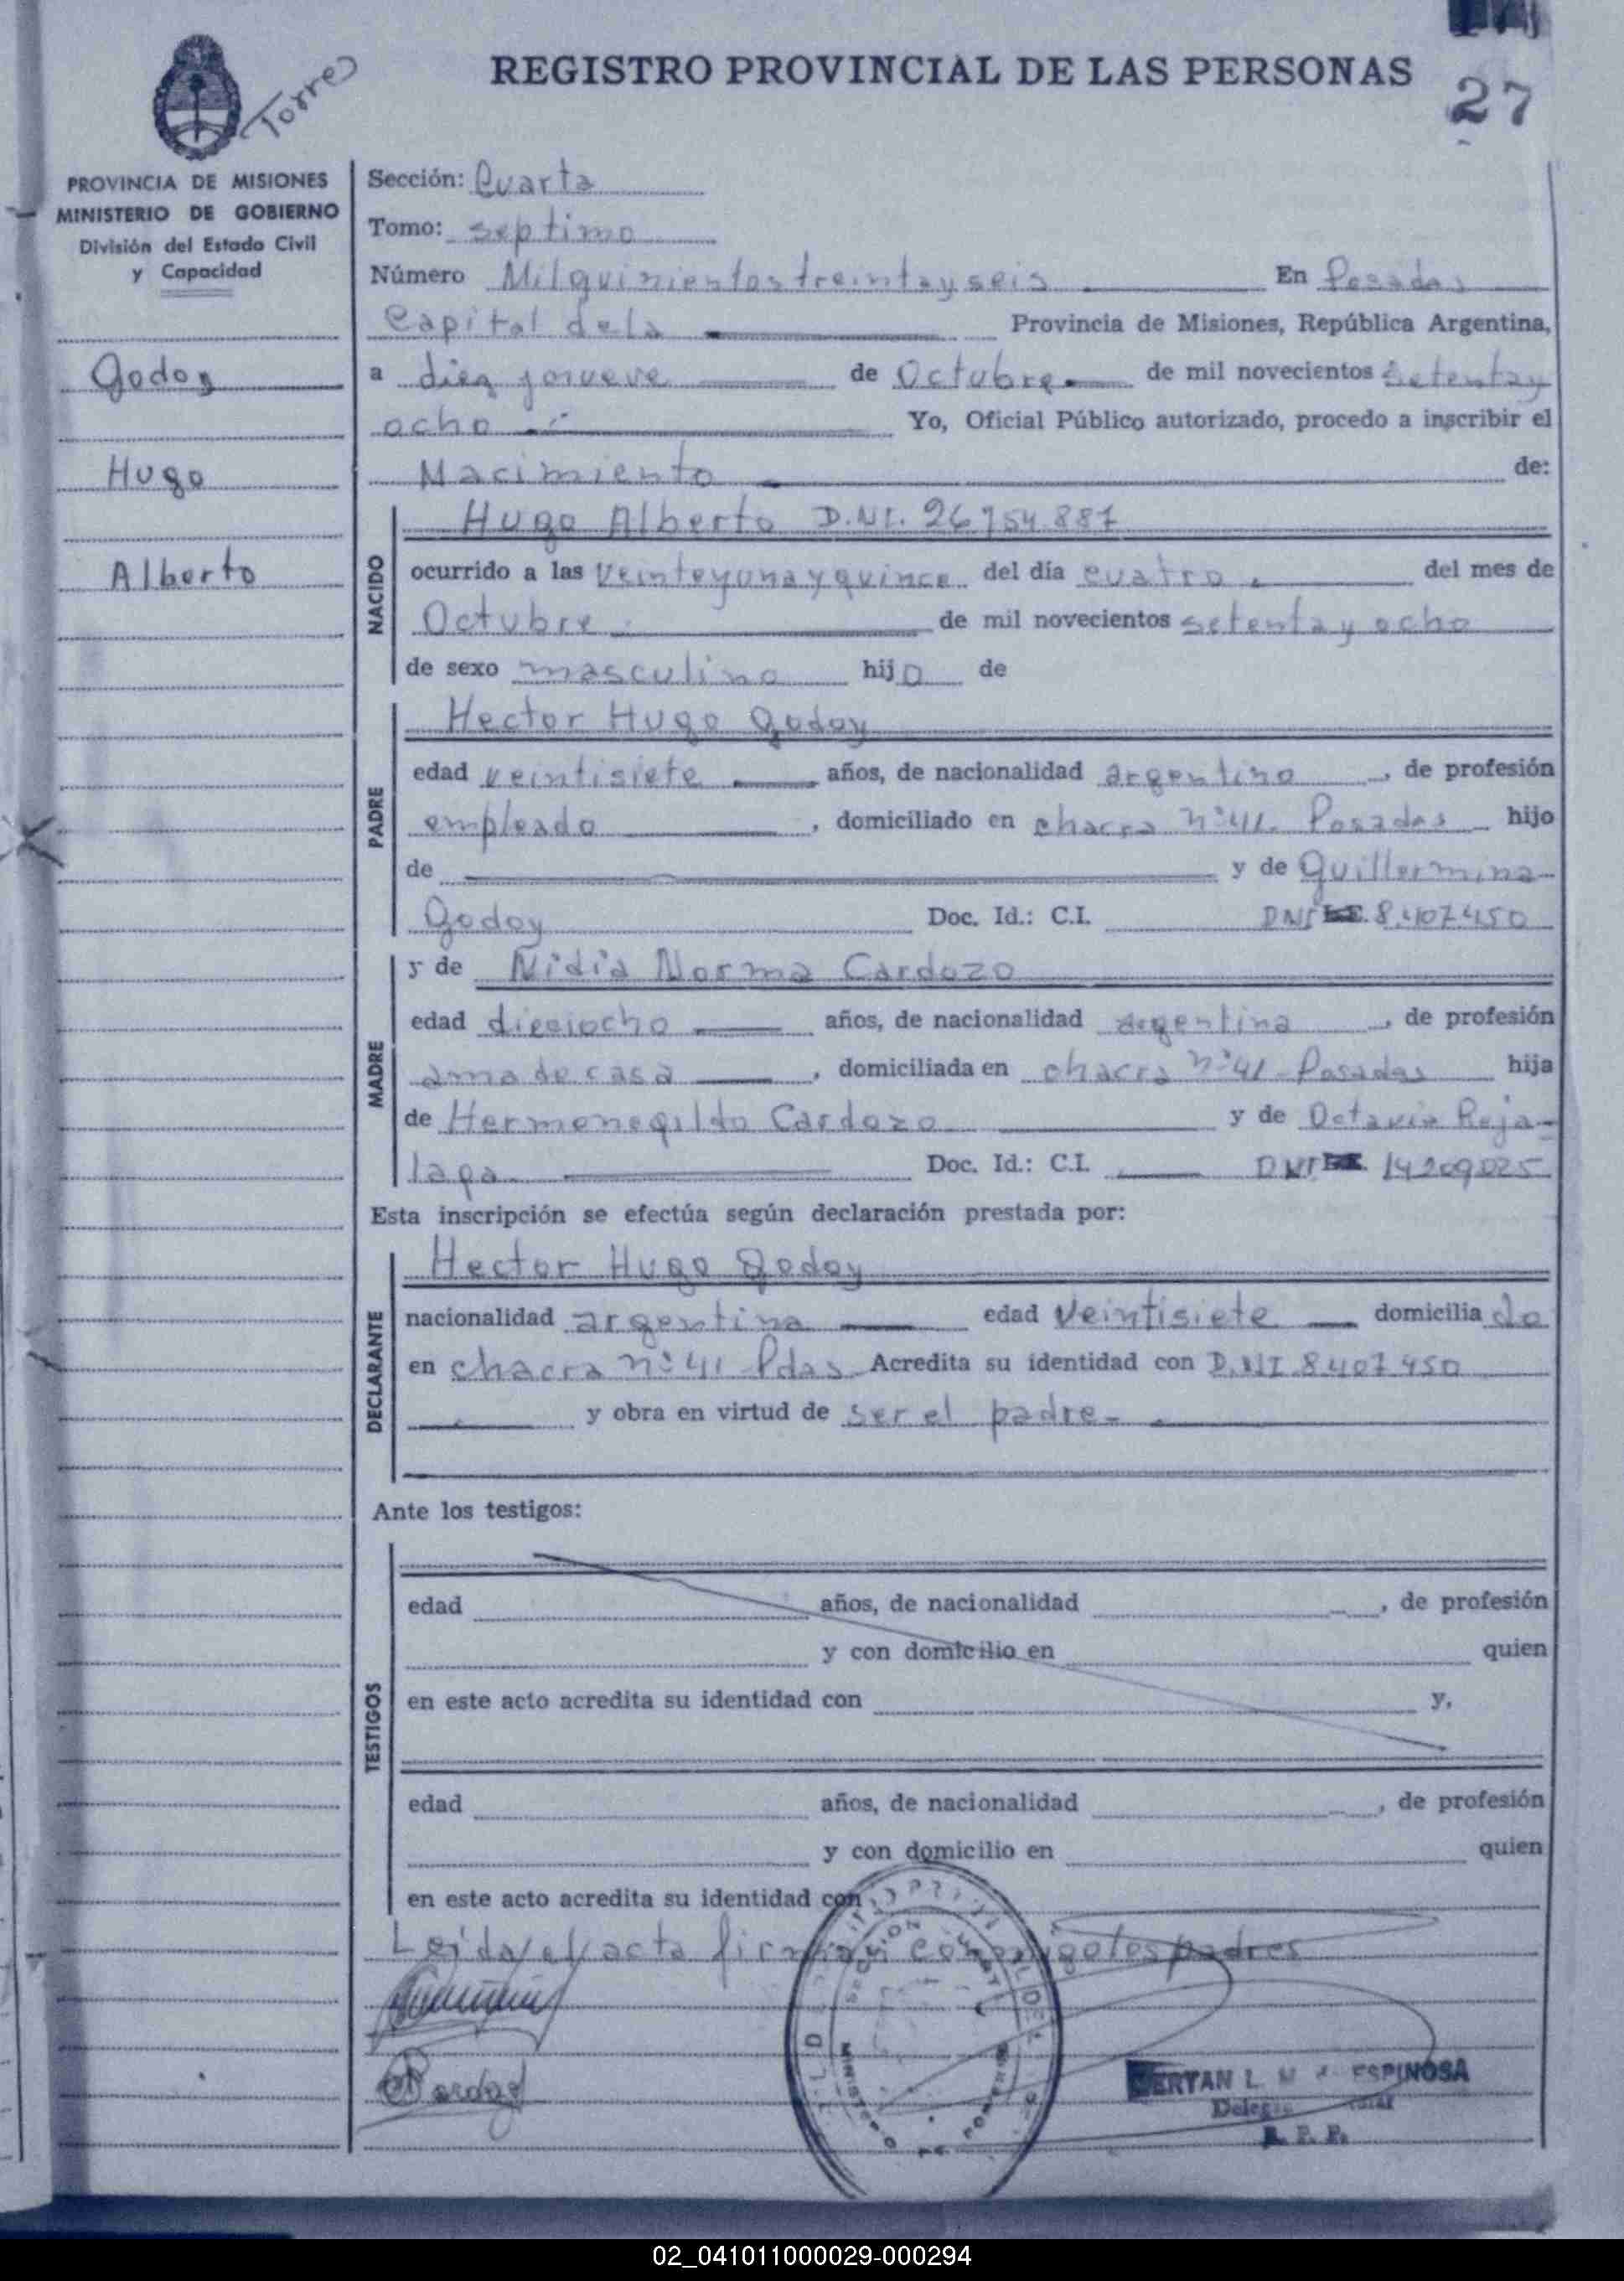 REGISTRO PROVINCIAL DE LAS PERSONAS
27
Torres
PROVINCIA DE MISIONES
MINISTERIO DE GOBIERNO
División del Estado Civil
y Capacidad
Godoy
Hugo
Alberto
Sección: Cuarta
Tomo: septimo
Número Milquinientos treinta y seis En Posadas
Capital de la Provincia de Misiones, República Argentina,
a diez y nueve de Octubre de mil novecientos setenta y
ocho Yo, Oficial Público autorizado, procedo a inscribir el
Nacimiento de:
NACIDO
Hugo Alberto D.N.I. 26.754.887
ocurrido a las veinte y una y quince del día cuatro del mes de
Octubre de mil novecientos setenta y ocho
de sexo masculino hijo de
PADRE
Hector Hugo Godoy
edad veintisiete años, de nacionalidad argentino, de profesión
empleado, domiciliado en chacra nº 41. Posadas hijo
de y de Guillermina
Godoy Doc. Id.: C.I. DNI 8.407.450
MADRE
y de Nidia Norma Cardozo
edad dieciocho años, de nacionalidad argentina, de profesión
ama de casa, domiciliada en chacra nº 41 - Posadas hija
de Hermenegildo Cardozo y de Octavia Reja-
lapa Doc. Id.: C.I. DNI 14209025
Esta inscripción se efectúa según declaración prestada por:
DECLARANTE
Hector Hugo Godoy
nacionalidad argentina edad veintisiete domicilia do
en chacra nº 41 Pdas Acredita su identidad con D.N.I 8.407.450
y obra en virtud de ser el padre-
Ante los testigos:
TESTIGOS
edad años, de nacionalidad , de profesión
y con domicilio en quien
en este acto acredita su identidad con y,
edad años, de nacionalidad , de profesión
y con domicilio en quien
en este acto acredita su identidad con
Leída el acta firman conmigo los padres
Cardozo
SECCION CUARTA
MINISTERIO DE GOBIERNO
ESPINOSA
R. P. P.
02_041011000029-000294